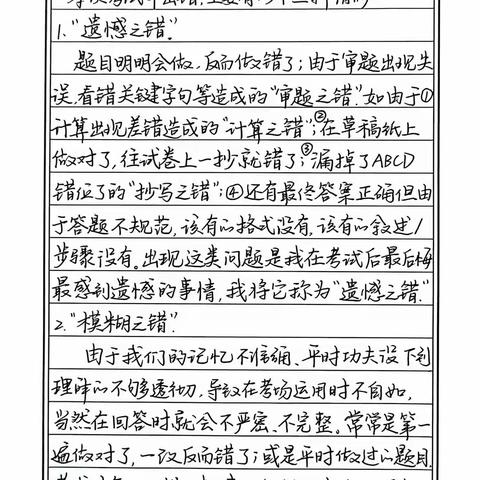 1."遗憾之错".
题目明明会做,反而做错了;由于审题出现失
误,看错关键字句等造成的"审题之错".如由于①
计算出现差错造成的"计算之错";②在草稿纸上
做对了,往试卷上一抄就错了;③漏掉了ABCD
错位了的"抄写之错";④还有最终答案正确但由
于答题不规范,该有的格式没有,该有的叙述/
步骤没有。出现这类问题是我在考试后最后悔
最感到遗憾的事情,我将它称为"遗憾之错."
2."模糊之错".
由于我们的记忆不准确、平时功夫没下到
理解的不够透彻,导致在考场运用时不自如,
当然在回答时就会不严密、不完整。常常是第一
遍做对了,一改反而错了;或是平时做过的题目,